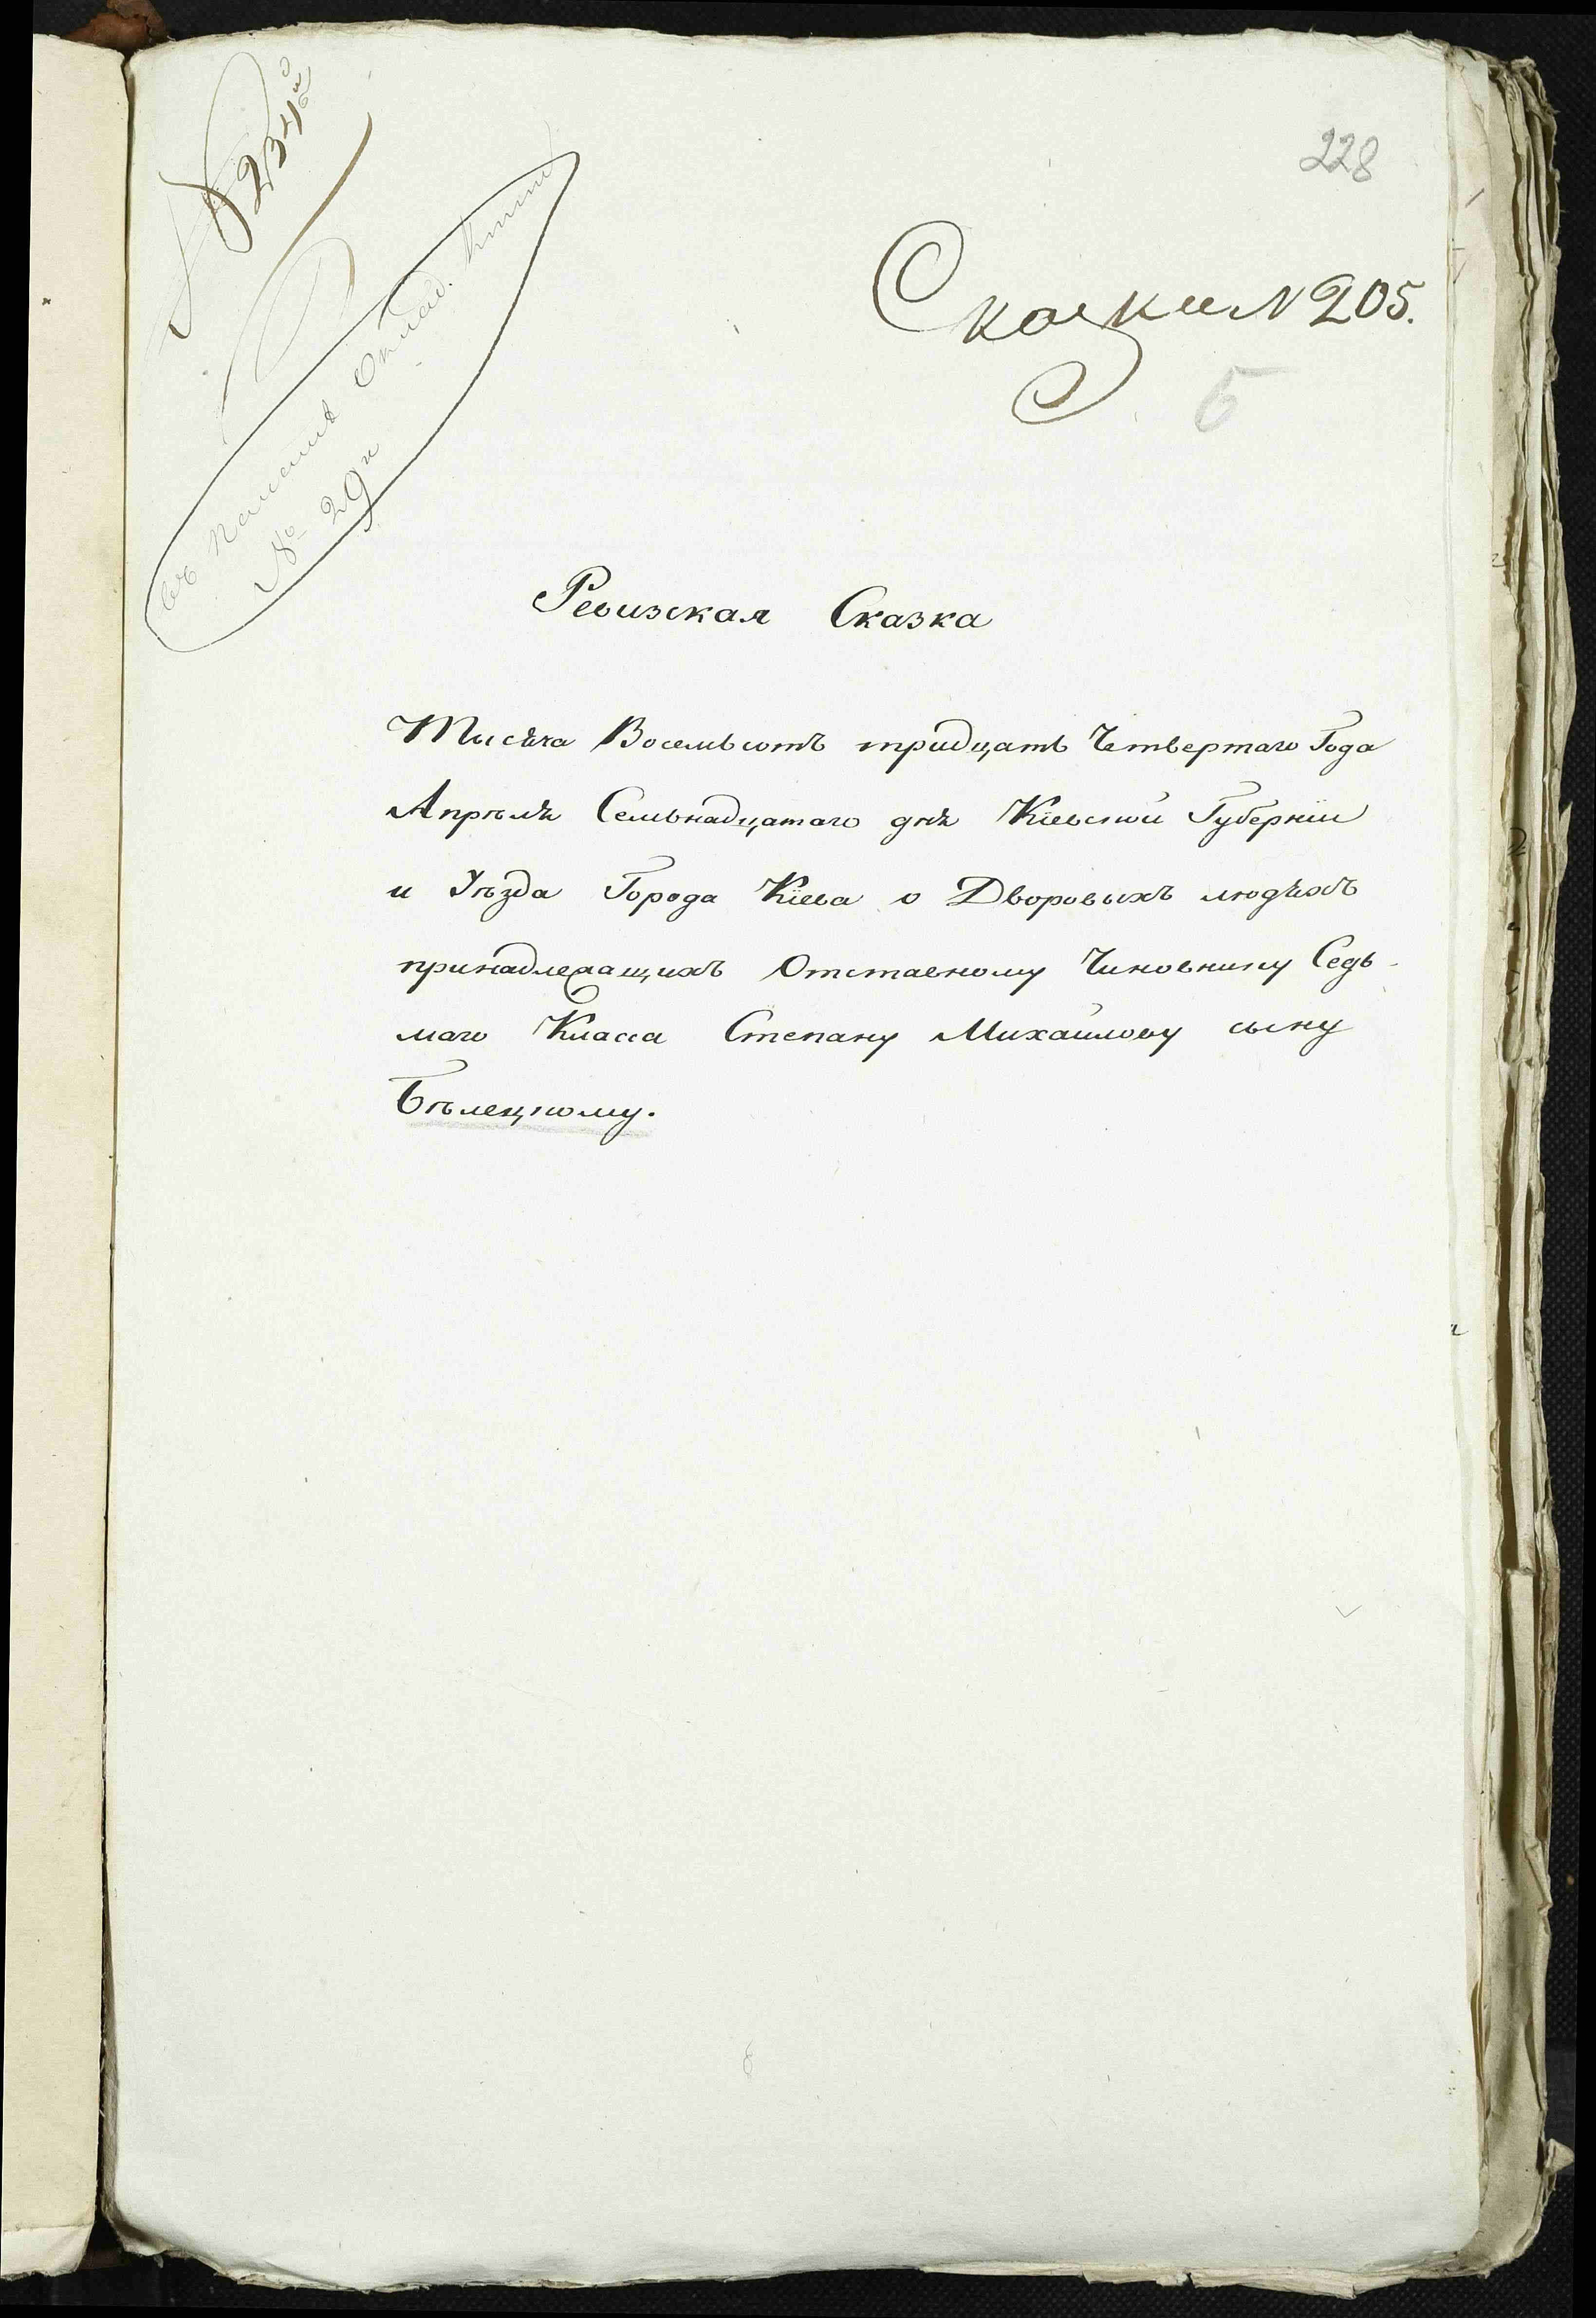 228
№ 234й
Сказки N 205.
Б
въ Окладъ. книги
№ 29й
Ревизская Сказка
Тысяча Восемьсотъ тридцать Четвертаго Года
Апрѣля Семьнадцатаго дня Кіевской Губерніи
и Уѣзда Города Кіева о Дворовыхъ людяхъ
принадлежащихъ Отставному Чиновнику Седь-
маго Класса Степану Михайлову сыну
Бѣлецкому.